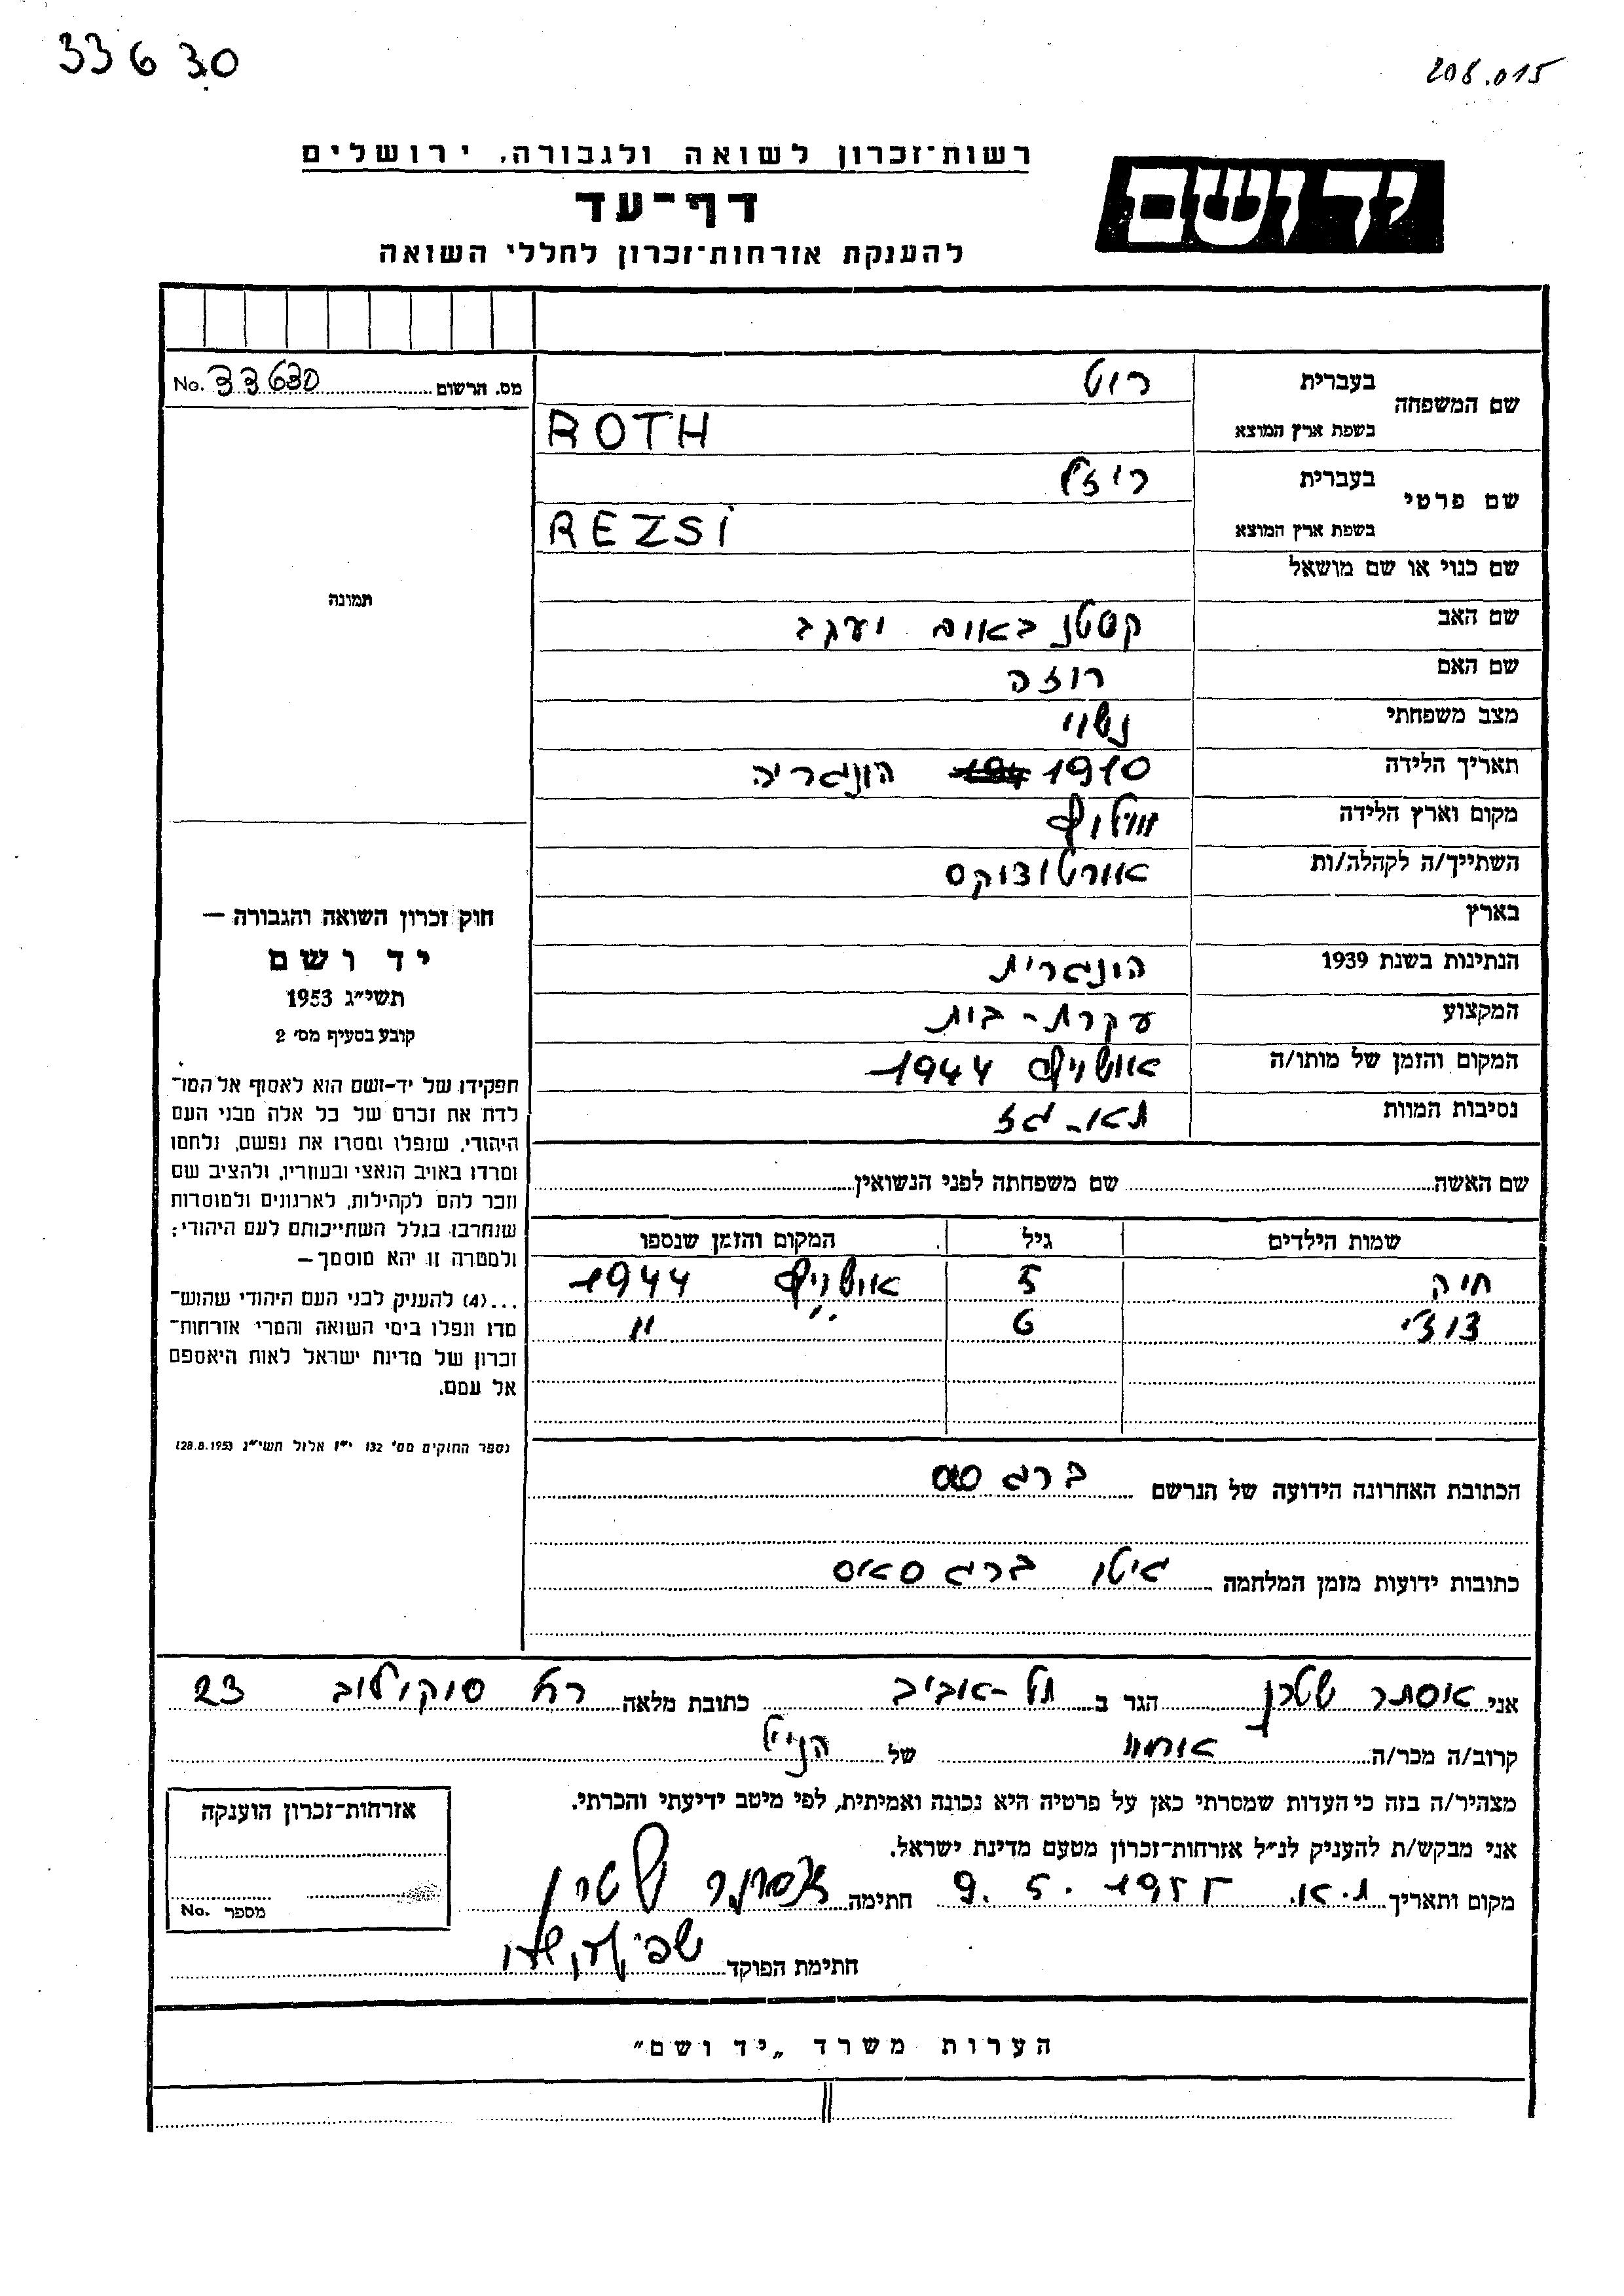 33630
208.015
רשות־זכרון לשואה ולגבורה, ירושלים
יד ושם
דף־עד
להענקת אזרחות־זכרון לחללי השואה
מס. הרשום 33630 No.
שם המשפחה
בעברית רוט
בשפת ארץ המוצא ROTH
שם פרטי
בעברית ריזל
בשפת ארץ המוצא REZSI
שם כנוי או שם מושאל
תמונה
שם האב קסטנבאום יעקב
שם האם רוזה
מצב משפחתי נשוי
תאריך הלידה 1910 הונגריה
מקום וארץ הלידה
השתייך/ה לקהלה/ות אורטודוקס
בארץ
הנתינות בשנת 1939 הונגרית
המקצוע עקרת-בית
המקום והזמן של מותו/ה אושויץ 1944
נסיבות המוות תא-גז
חוק זכרון השואה והגבורה —
יד ושם
תשי״ג 1953
קובע בסעיף מס׳ 2
תפקידו של יד-ושם הוא לאסוף אל המו־
לדת את זכרם של כל אלה מבני העם
היהודי, שנפלו ומסרו את נפשם, נלחמו
ומרדו באויב הנאצי ובעוזריו, ולהציב שם
וזכר להם לקהילות, לארגונים ולמוסדות
שנחרבו בגלל השתייכותם לעם היהודי;
ולמטרה זו יהא מוסמך—
...(4) להעניק לבני העם היהודי שהוש־
מדו ונפלו בימי השואה והמרי אזרחות־
זכרון של מדינת ישראל לאות היאספם
אל עמם.
(ספר החוקים מס׳ 132 י״ז אלול תשי״ג 28.8.1953)
שם האשה שם משפחתה לפני הנשואין
שמות הילדים גיל המקום והזמן שנספו
חיה 5 אושויץ 1944
דודי 6 " "
הכתובת האחרונה הידועה של הנרשם ברגסס
כתובות ידועות מזמן המלחמה גיטו ברגסאס
אני אסתר שטרן הגר ב תל-אביב כתובת מלאה רח סוקולוב 23
קרוב/ה מכר/ה אחות של הנ״ל
מצהיר/ה בזה כי העדות שמסרתי כאן על פרטיה היא נכונה ואמיתית, לפי מיטב ידיעתי והכרתי.
אני מבקש/ת להעניק לנ״ל אזרחות־זכרון מטעם מדינת ישראל.
מקום ותאריך ת.א. 9.5.1955 חתימה אסתר שטרן
חתימת הפוקד
אזרחות־זכרון הוענקה
מספר No.
הערות משרד „יד ושם״